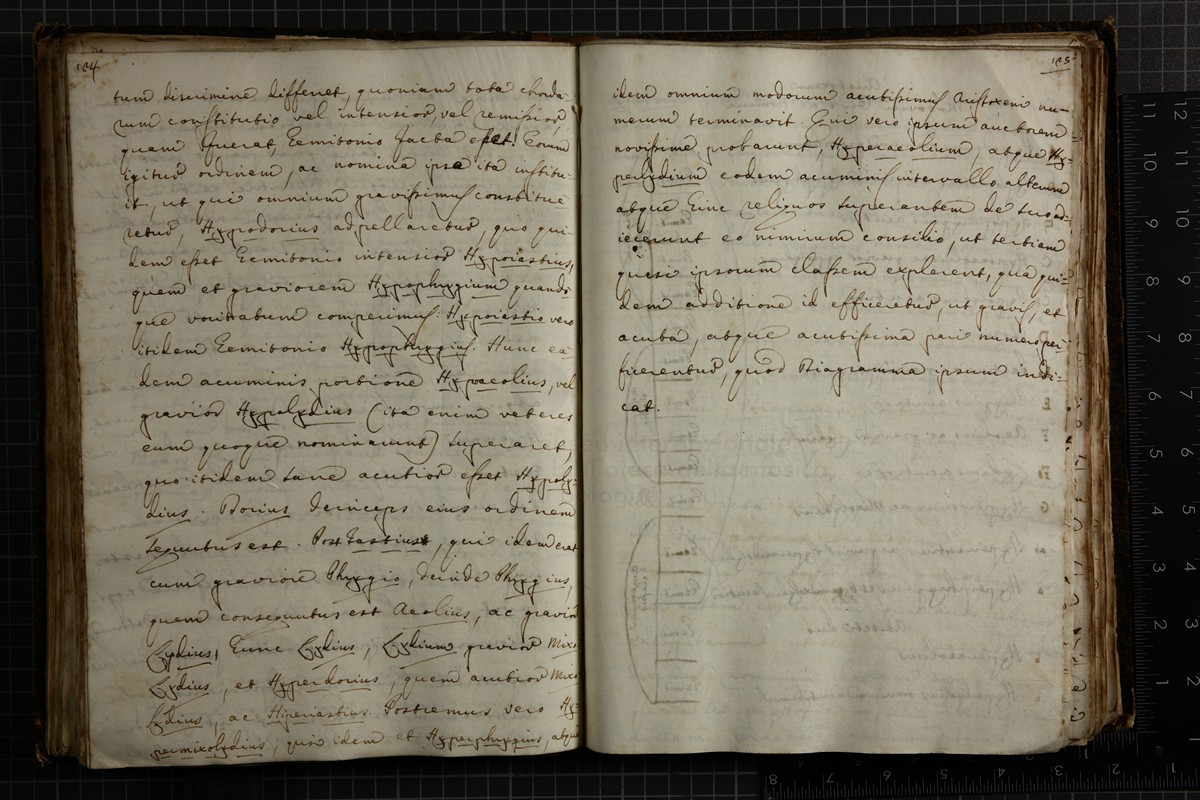 104
tum discrimine differet, quoniam tota chorda-
rum constitutio vel intensior, vel remissior
quam fuerat, Hemitonio facta esset! Eorum
igitur ordinem, ac nomina ipse ita institu-
it, ut qui omnium gravissimus constitue
retur, Hypodorius adpellaretur, quo qui-
dem esset Hemitonio intensior Hypoiastius,
quem et graviorem Hypophrygium quando-
que vocitatum comperimus: Hypoiastio vero
itidem Hemitonio Hypophrygius. Hunc ea-
dem acuminis portione Hypoaeolius, vel
gravior Hypolydius (ita enim veteres
eum quoque nominarunt) superaret,
quo itidem sane acutior esset Hypoly-
dius. Dorius deinceps eius ordinem
sequutus est. Post Iastius, qui idem erat
cum graviore Phrygio, deinde Phrygius,
quem consequutus est Aeolius, ac gravior
Lydius, hunc Lydius, Lydium gravior Mixo
Lydius, et Hyperdorius, quem acutior Mixo
Lydius, ac Hiperiastius. Postremus vero Hy-
permixolydius, qui idem et Hyperphrygius, atque
105
idem omnium modorum acutissimus Aristoxeni nu-
merum terminavit. Qui vero ipsum auctorem
novissime probarunt, Hyperaeolium, atque Hy-
perlydium eodem acuminis intervallo alterum
atque hinc reliquos superantem de suo ad-
iecerunt eo nimirum consilio, ut tertiam
quasi ipsorum classem explerent, qua qui-
dem additione id efficeretur, ut gravis, et
acuta, atque acutissima pari numero per-
ficerentur, quod Diagramma ipsum indi-
cat.